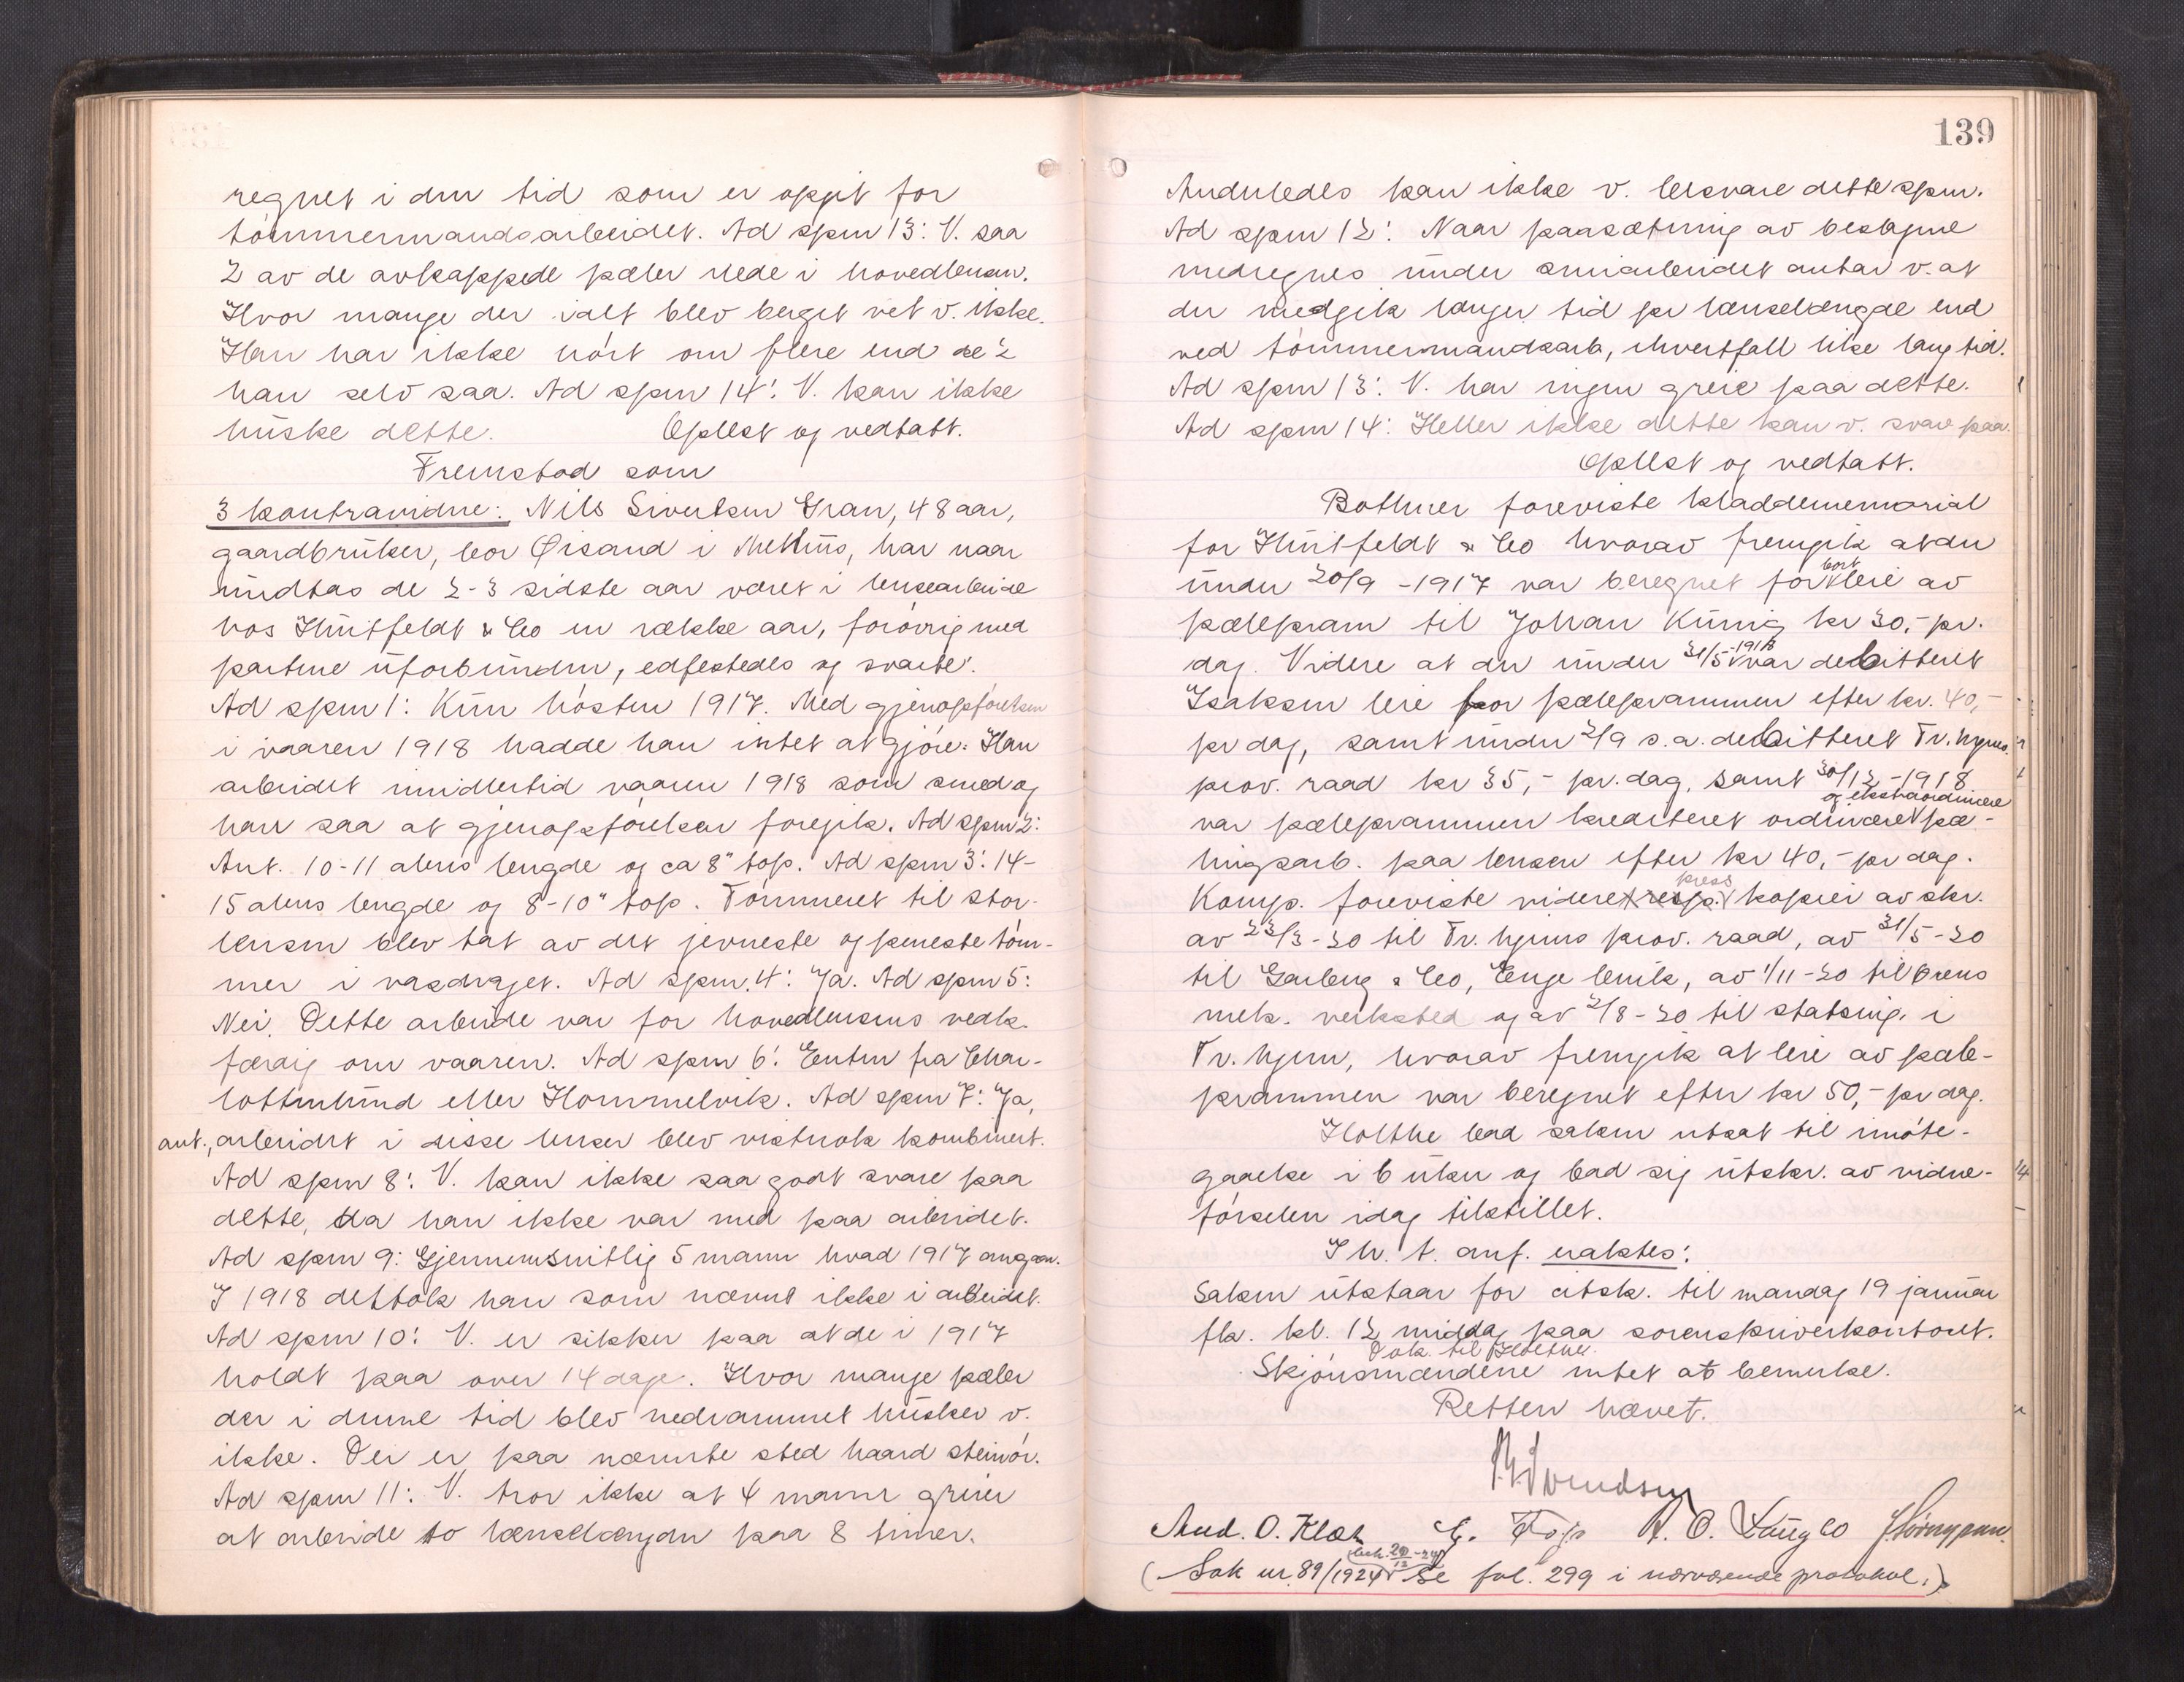 regnet i den tid som er opgit for
tömmermandsarbeidet. Ad spm 13: V. saa
2 av de avkappede pæler nede i hovedlensen.
Hvor mange der ialt blev berget vet v. ikke.
Han har ikke hört om flere end de 2
han selv saa. Ad spm 14: V. kan ikke
huske dette. Oplest og vedtatt.
Fremstod som
3 kontravidne: Nils Sivertsen Gran, 48 aar,
gaardbruker, bor Øisand i Melhus, har naar
undtas de 2-3 sidste aar været i lensearbeide
hos Huitfeldt & Co en række aar, forövrig med
partene uforbunden, edfestedes og svarte:
Ad spm 1: Kun hösten 1917. Med gjenopförelsen
i vaaren 1918 hadde han intet at gjöre. Han
arbeidet imidlertid vaaren 1918 som smed og
han saa at gjenopförelsen foregik. Ad spm 2:
Ant. 10-11 alens lengde og ca 8" top. Ad spm 3: 14-
15 alens lengde og 8-10" top. Tömmeret til stor-
lensen blev tat av det jevneste og peneste töm-
mer i vasdraget. Ad spm. 4: Ja. Ad spm 5:
Nei. Dette arbeide var for hovedlensens vedk.
færdig om vaaren. Ad spm 6: Enten fra Char-
lottenlund eller Hommelvik. Ad spm 7: Ja,
ant., arbeidet i disse lenser blev vistnok kombinert.
Ad spm 8: V. kan ikke saa godt svare paa
dette, da han ikke var med paa arbeidet.
Ad spm 9: Gjennemsnitlig 5 mann hvad 1917 angaar.
I 1918 deltok han som nævnt ikke i arbeidet.
Ad spm 10: V. er sikker paa at de i 1917
holdt paa over 14 dage. Hvor mange pæler
der i denne tid blev nedrammet husker v.
ikke. Der er paa nævnte sted haard steinör.
Ad spm 11: V. tror ikke at 4 mann greier
at arbeide to lænselængder paa 8 timer.
139
Anderledes kan ikke v. besvare dette spm.
Ad spm 12: Naar paasætning av beslagene
medregnes under smiarbeidet antar v. at
der medgik længer tid pr lænselængde end
ved tömmermandsarb, ihvertfall like lang tid.
Ad spm 13: V. har ingen greie paa dette.
Ad spm 14: Heller ikke dette kan v. svare paa.
Oplest og vedtatt.
Bothner foreviste kladdememorial
for Huitfeldt & Co hvorav fremgik at der
under 20/9 -1917 var beregnet for bortleie av
pælepram til Johan Kunig kr 30,- pr.
dag. Videre at der under 31/5 -1918 var debitteret
Isaksen leie for pæleprammen efter kr. 40,-
pr dag, samt under 2/9 s.a. debitteret Tr. hjems
prov. raad kr 35,- pr. dag, samt 30/12 -1918
var pæleprammen krediteret ordinære og ekstraordinære pæ-
lingsarb. paa lensen efter kr 40,- pr dag.
Komp. foreviste videre press kopier av skr.
av 23/3-20 til Tr. hjems prov. raad, av 31/5-20
til Garberg & Co, Enge bruk, av 1/11-20 til Ørens
mek. verksted og av 2/8-20 til statsing. i
Tr. hjem, hvorav fremgik at leie av pæle-
prammen var beregnet efter kr 50,- pr dag.
Holthe bad saken utsat til imöte-
gaaelse i 6 uker og bad sig utskr. av vidne-
förselen idag tilstillet.
I h. t. anf. eraktes:
Saken utstaar for citsk. til mandag 19 januar
fk. kl. 12 middag paa sorenskriverkontoret.
Dok. til Holthe.
Skjönsmændene intet at bemerke.
Retten hævet.
And. O. Klæt E. Fog A. O. Langlo
(Sak nr. 89/1924 besk. 20/12-24 Se fol. 299 i nærværende protokol.)